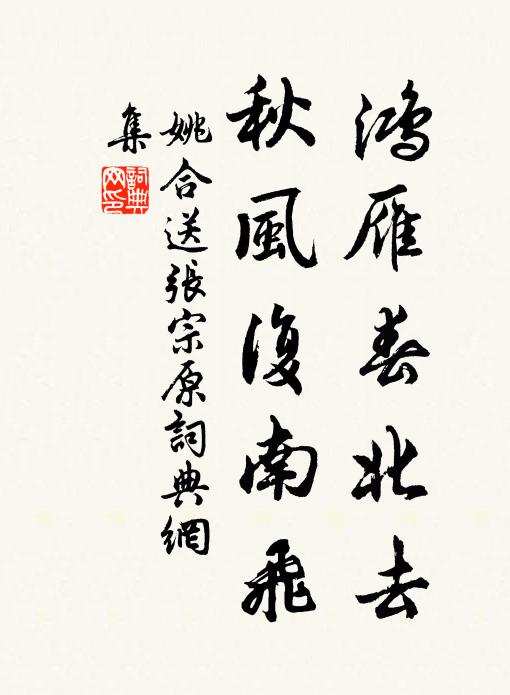 鸿雁春北去
秋風復南飛
姚合送張宗原詞典網
集
詞典
网印